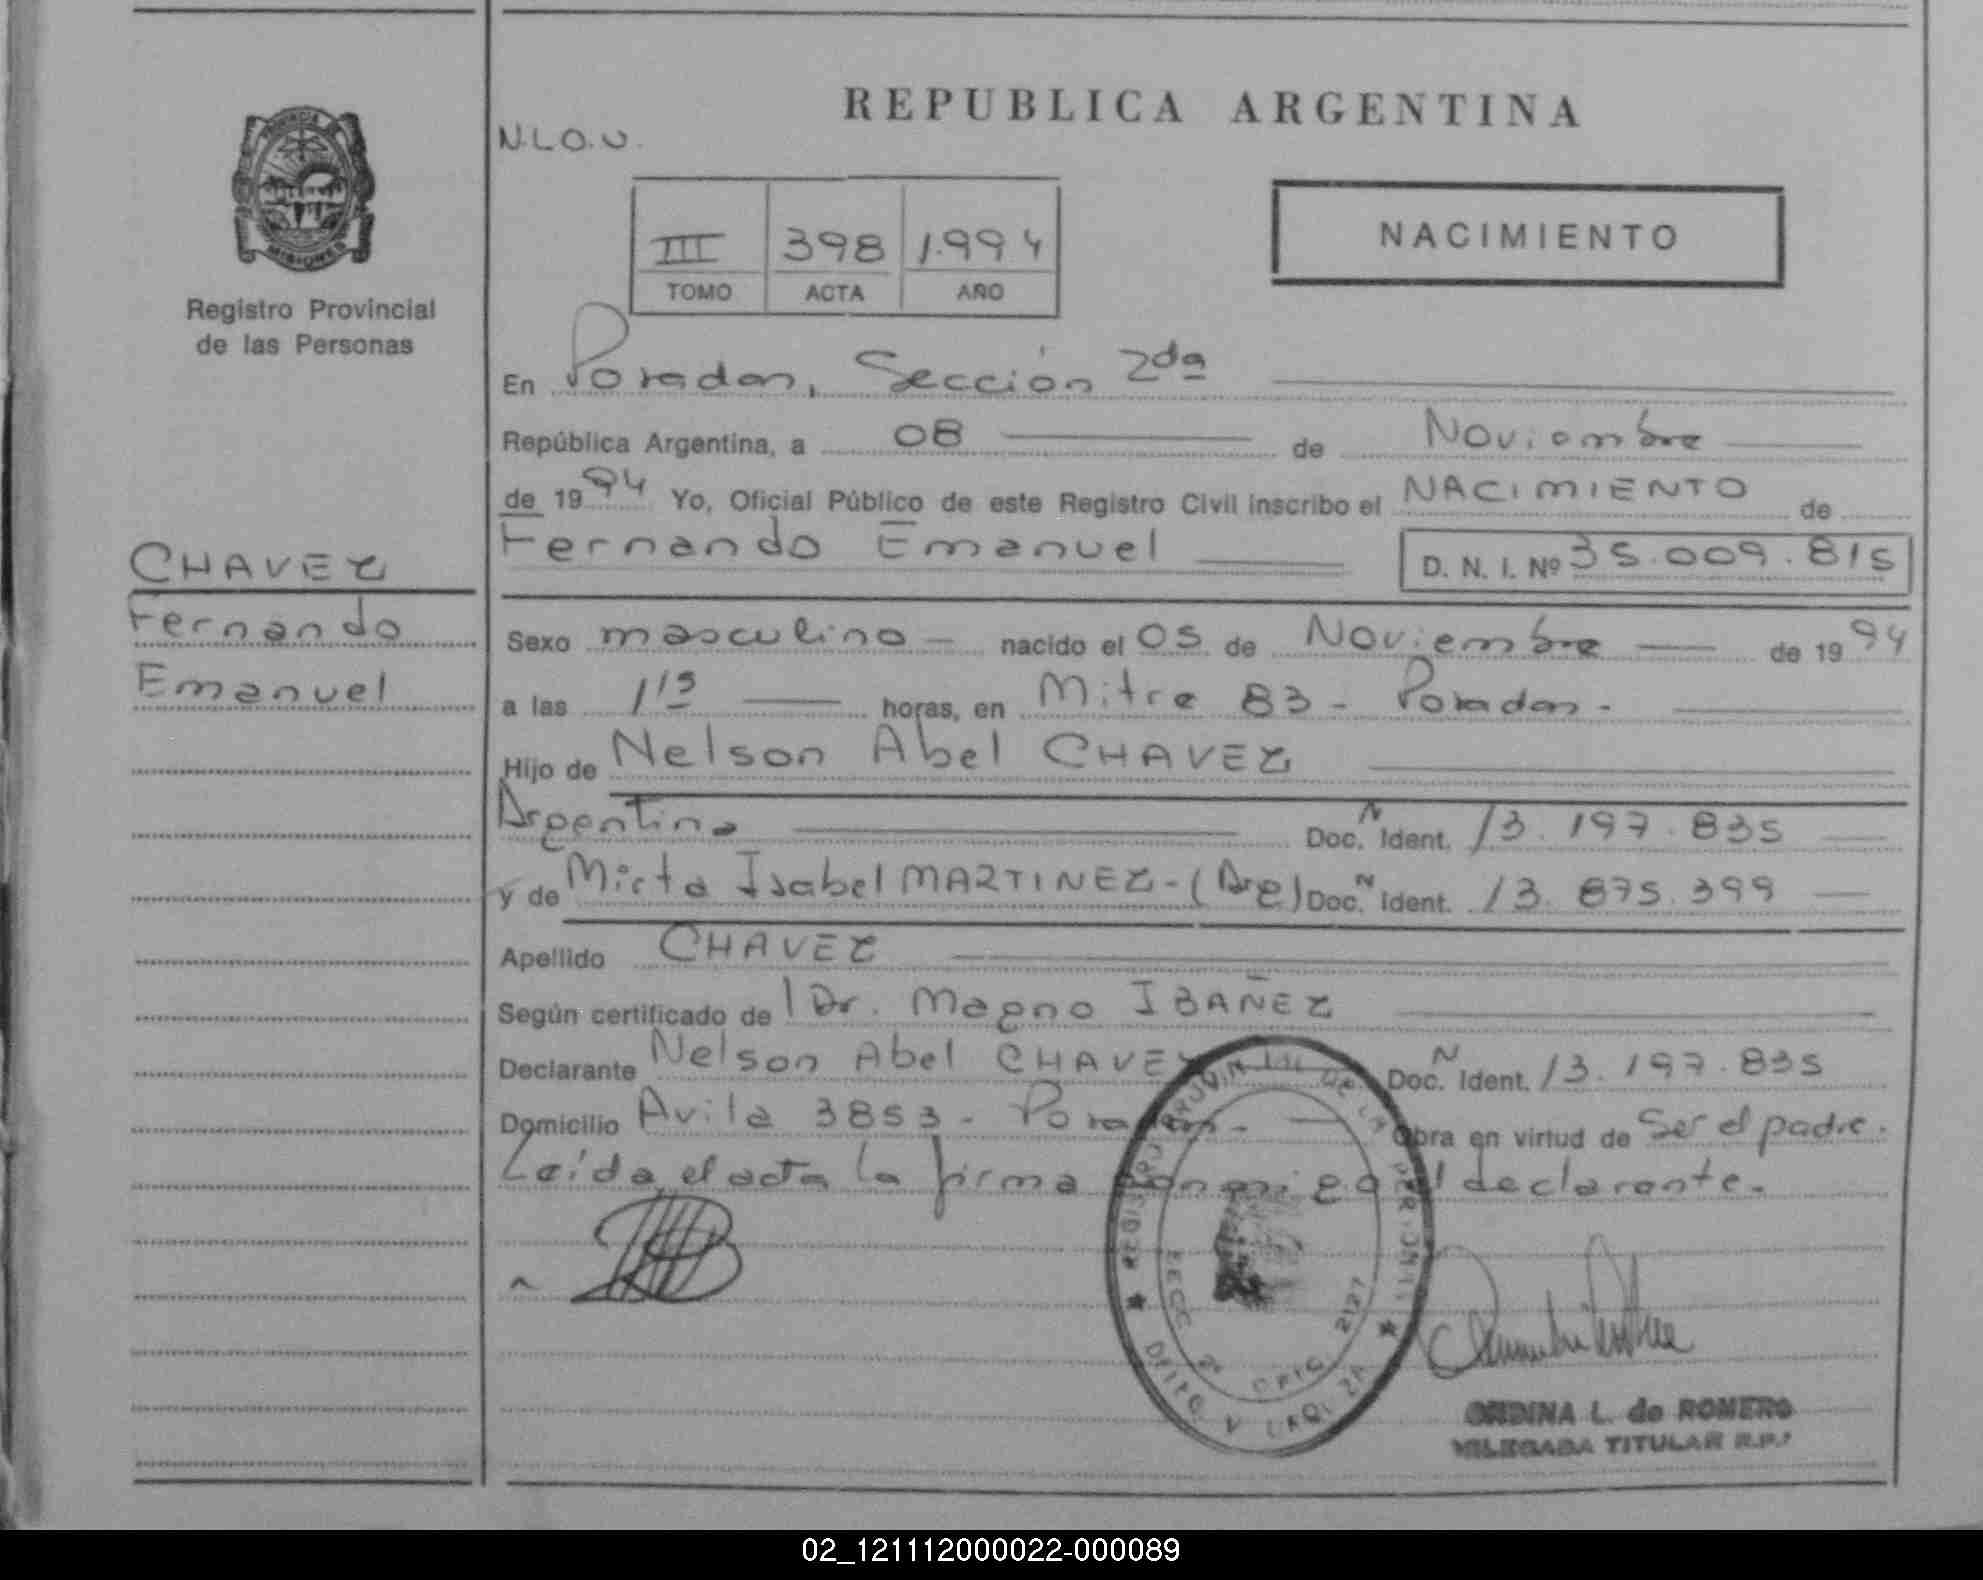 REPUBLICA ARGENTINA
N.L.O.U.
PROVINCIA DE
MISIONES
Registro Provincial
de las Personas
III 398 1.994
TOMO ACTA AÑO
NACIMIENTO
En Posadas, Sección 2da
República Argentina, a 08 de Noviembre
de 1994 Yo, Oficial Público de este Registro Civil inscribo el NACIMIENTO de
Fernando Emanuel D. N. I. Nº 35.009.815
CHAVEZ
Fernando
Emanuel
Sexo masculino nacido el 05 de Noviembre de 1994
a las 1 15 horas, en Mitre 83 - Posadas.
Hijo de Nelson Abel CHAVEZ
Argentina Doc. Ident. 13.197.835
y de Mirta Isabel MARTINEZ - (Arg) Doc. Ident. 13.875.399
Apellido CHAVEZ
Según certificado de l Dr. Magno IBAÑEZ
Declarante Nelson Abel CHAVEZ Doc. Ident. 13.197.835
Domicilio Avila 3853 - Posadas. Obra en virtud de Ser el padre.
Leída el acta la firma conmigo el declarante.
SECC 2º OFIC 2127
ONDINA L. de ROMERO
DELEGADA TITULAR R.P.
02_121112000022-000089